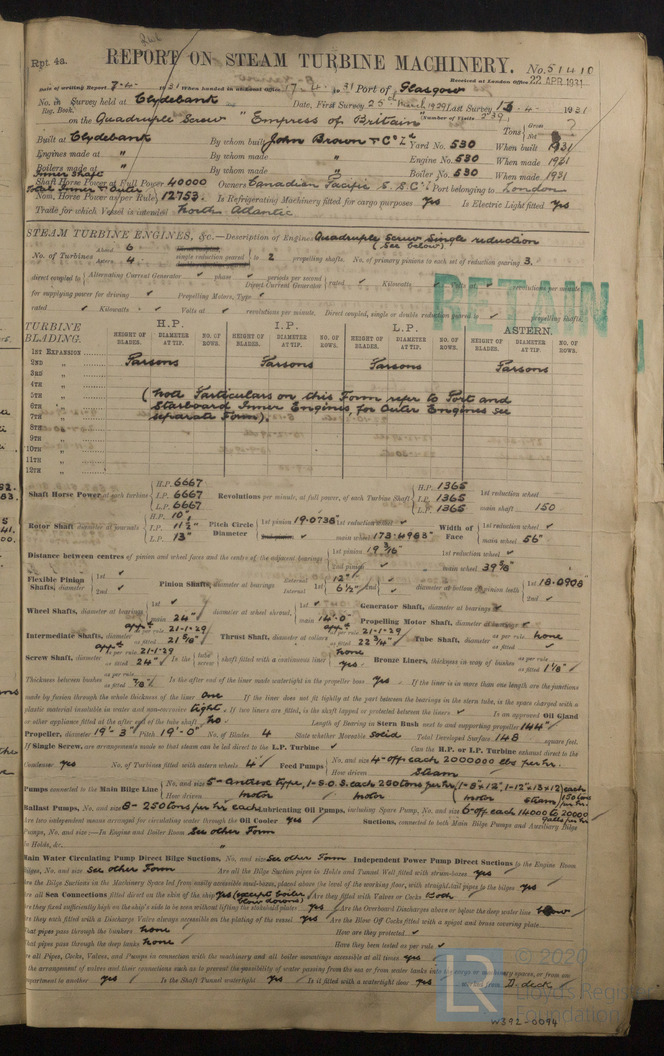 Rpt 4a.
REPORT ON STEAM TURBINE MACHINERY. No. 51410
Received at London Office 22 APR 1931
Date of writing Report 7-4-1931 When handed in at Local Office 17-4-31 Port of Glasgow
No. in Survey held at Clydebank Date, First Survey 25th March 1929 Last Survey 4-1931
Reg. Book.
on the Quadruple Screw "Empress of Britain" (Number of Visits 239)
Tons Gross
Net
Built at Clydebank By whom built John Brown & Co Ld Yard No. 530 When built 1931
Engines made at " By whom made " Engine No. 530 When made 1931
Boilers made at " By whom made " Boiler No. 530 When made 1931
Inner Shaft
Shaft Horse Power at Full Power 40000 Owners Canadian Pacific S.S. Co. Port belonging to London
Total Inner & Outer
Nom. Horse Power as per Rule 12753. Is Refrigerating Machinery fitted for cargo purposes Yes Is Electric Light fitted Yes
Trade for which Vessel is intended North Atlantic
STEAM TURBINE ENGINES, &c.—Description of Engines Quadruple Screw Single reduction
(See below)
No. of Turbines Ahead 6 Astern 4 single reduction geared to 2 propelling shafts. No. of primary pinions to each set of reduction gearing 3.
direct coupled to Alternating Current Generator phase periods per second
Direct Current Generator rated Kilowatts Volts at revolutions per minute
for supplying power for driving Propelling Motors, Type
rated Kilowatts Volts at revolutions per minute. Direct coupled, single or double reduction geared to propelling shafts.
RETAIN
TURBINE BLADING. H.P. I.P. L.P. ASTERN.
HEIGHT OF BLADES. DIAMETER AT TIP. NO. OF ROWS. HEIGHT OF BLADES. DIAMETER AT TIP. NO. OF ROWS. HEIGHT OF BLADES. DIAMETER AT TIP. NO. OF ROWS. HEIGHT OF BLADES. DIAMETER AT TIP. NO. OF ROWS.
1ST EXPANSION
2ND " Parsons Parsons Parsons Parsons
3RD "
4TH "
5TH " (Note Particulars on this Form refer to Port and
6TH " Starboard Inner Engines, for Outer Engines see
7TH " separate Form).
8TH "
9TH "
10TH "
11TH "
12TH "
Shaft Horse Power at each turbine H.P. 6667 I.P. 6667 L.P. 6667 Revolutions per minute, at full power, of each Turbine Shaft H.P. 1365 I.P. 1365 L.P. 1365 1st reduction wheel main shaft 150
Rotor Shaft diameter at journals H.P. 10" I.P. 11½" L.P. 13" Pitch Circle Diameter 1st pinion 19.0736" 1st reduction wheel main wheel 173.4983" Width of Face 1st reduction wheel main wheel 56"
Distance between centres of pinion and wheel faces and the centre of the adjacent bearings 1st pinion 19 3/16" 2nd pinion 1st reduction wheel main wheel 39 5/8"
Flexible Pinion Shafts, diameter 1st 2nd Pinion Shafts, diameter at bearings External 1st 12" Internal 1st 6½" 2nd diameter at bottom of pinion teeth 1st 18.0908 2nd
Wheel Shafts, diameter at bearings 1st main 24" diameter at wheel shroud, 1st main 14'-0" Generator Shaft, diameter at bearings
Propelling Motor Shaft, diameter at bearings
Intermediate Shafts, diameter as per rule appd 21-1-29 as fitted 21 5/8" Thrust Shaft, diameter at collars as per rule appd 21-1-29 as fitted 22 3/4" Tube Shaft, diameter as per rule none as fitted
Screw Shaft, diameter as per rule appd 21-1-29 as fitted 24" Is the tube screw shaft fitted with a continuous liner none yes Bronze Liners, thickness in way of bushes as per rule as fitted 1 1/8"
Thickness between bushes as per rule as fitted 7/8" Is the after end of the liner made watertight in the propeller boss Yes If the liner is in more than one length are the junctions
made by fusion through the whole thickness of the liner One If the liner does not fit tightly at the part between the bearings in the stern tube, is the space charged with a
plastic material insoluble in water and non-corrosive tight. If two liners are fitted, is the shaft lapped or protected between the liners Is an approved Oil Gland
or other appliance fitted at the after end of the tube shaft No Length of Bearing in Stern Bush next to and supporting propeller 144"
Propeller, diameter 19'-3" Pitch 19'-0" No. of Blades 4 State whether Moveable Solid Total Developed Surface 148 square feet.
If Single Screw, are arrangements made so that steam can be led direct to the L.P. Turbine Can the H.P. or I.P. Turbine exhaust direct to the
Condenser Yes No. of Turbines fitted with astern wheels 4 Feed Pumps No. and size 4-off each 2000000 lbs per hr.
How driven Steam
Pumps connected to the Main Bilge Line No. and size 5-Antisse type, 1-S.O.S. each 250 tons per hr,
How driven Motor Motor Steam
Ballast Pumps, No. and size 8-250 tons per hr. each Lubricating Oil Pumps, including Spare Pump, No. and size 6-off each 14000 to 20000 galls per hr.
Are two independent means arranged for circulating water through the Oil Cooler Yes Suctions, connected to both Main Bilge Pumps and Auxiliary Bilge
Pumps, No. and size:—In Engine and Boiler Room See other Form
In Holds, &c. "
Main Water Circulating Pump Direct Bilge Suctions, No. and size See other Form Independent Power Pump Direct Suctions to the Engine Room
Bilges, No. and size See other Form Are all the Bilge Suction pipes in Holds and Tunnel Well fitted with strum-boxes Yes
Are the Bilge Suctions in the Machinery Space led from easily accessible mud-boxes, placed above the level of the working floor, with straight tail pipes to the bilges Yes
Are all Sea Connections fitted direct on the skin of the ship Yes (except boiler blow downs) Are they fitted with Valves or Cocks Both
Are they fixed sufficiently high on the ship's side to be seen without lifting the stokehold plates Yes Are the Overboard Discharges above or below the deep water line below
Are they each fitted with a Discharge Valve always accessible on the plating of the vessel Yes Are the Blow Off Cocks fitted with a spigot and brass covering plate
What pipes pass through the bunkers None How are they protected
What pipes pass through the deep tanks None Have they been tested as per rule
Are all Pipes, Cocks, Valves, and Pumps in connection with the machinery and all boiler mountings accessible at all times Yes
Is the arrangement of valves and their connections such as to prevent the possibility of water passing from the sea or from water tanks into the cargo or machinery spaces, or from one
compartment to another Yes Is the Shaft Tunnel watertight Yes Is it fitted with a watertight door Yes worked from D. deck
© 2020
LR
Lloyd's Register
Foundation
W392-0094